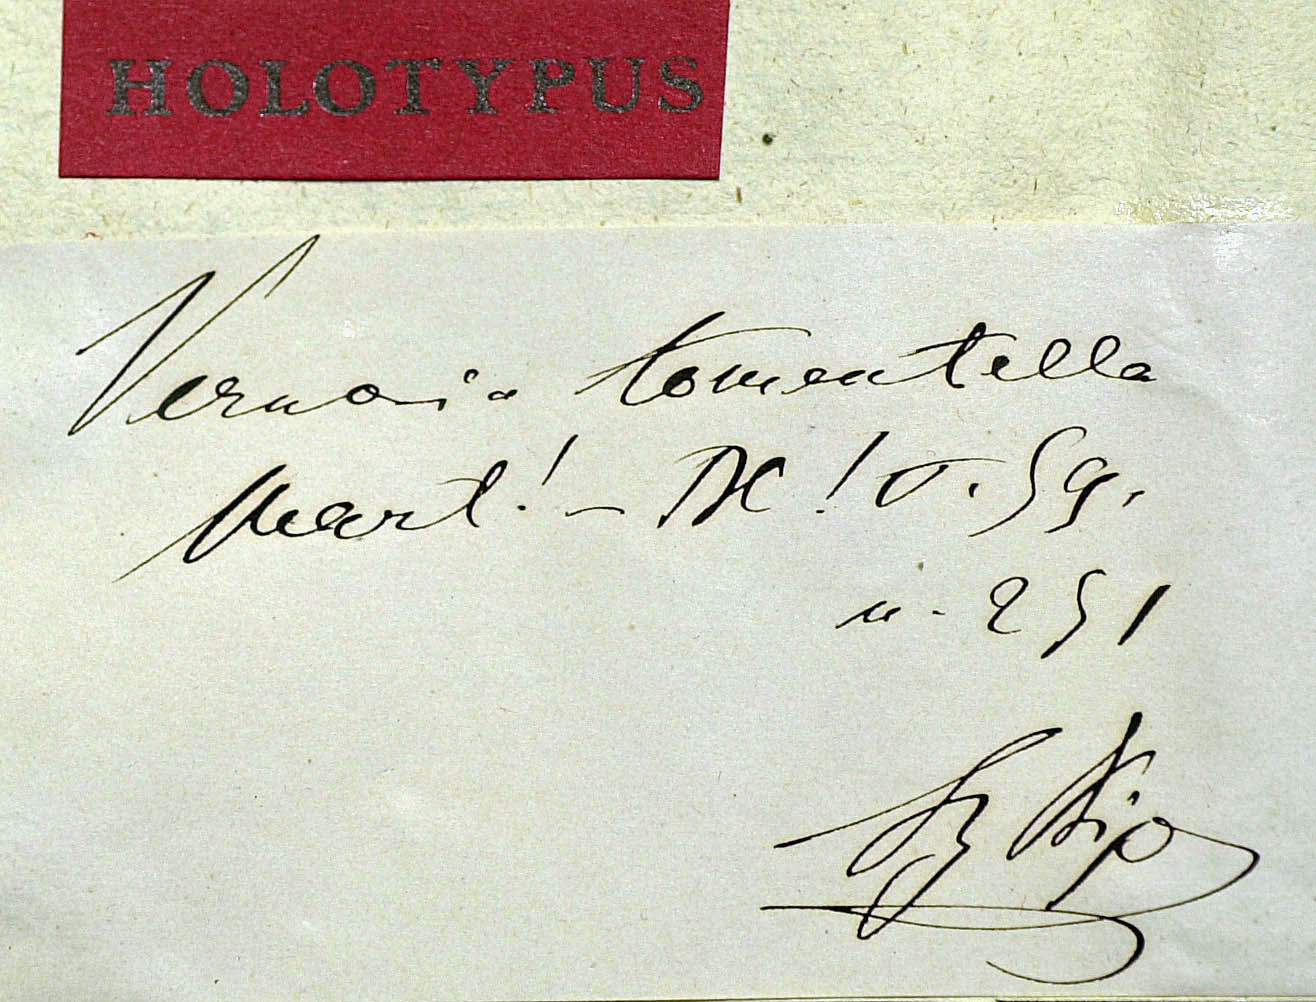 HOLOTYPUS
Vernonia tomentella
Mart! – DC! 5. 59.
n. 251